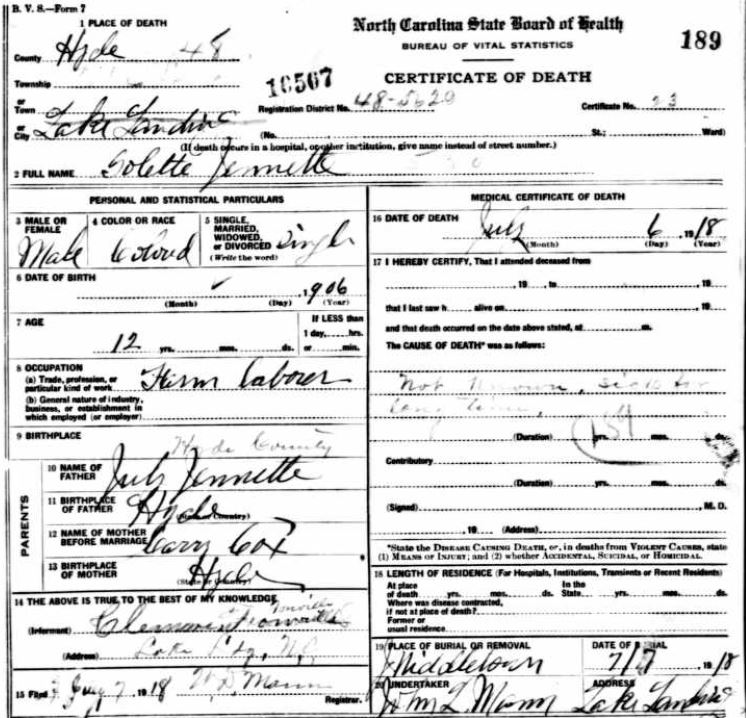 B. V. S.—Form 7
1 PLACE OF DEATH
County Hyde 48
Township
or
Town
or
City Lake Landing
North Carolina State Board of Health
BUREAU OF VITAL STATISTICS
189
CERTIFICATE OF DEATH
10507
Registration District No. 48-5620 Certificate No. 23
(No. St.; Ward)
(If death occurs in a hospital, or other institution, give name instead of street number.)
2 FULL NAME Golette Jennette
PERSONAL AND STATISTICAL PARTICULARS
3 MALE OR FEMALE Male
4 COLOR OR RACE Colored
5 SINGLE, MARRIED, WIDOWED, or DIVORCED (Write the word) Single
6 DATE OF BIRTH
, 1906
(Month) (Day) (Year)
7 AGE
12 yrs. mos. ds.
If LESS than
1 day, hrs.
or min.
8 OCCUPATION
(a) Trade, profession, or particular kind of work Farm Laborer
(b) General nature of industry, business, or establishment in which employed (or employer)
9 BIRTHPLACE
Hyde County
PARENTS
10 NAME OF FATHER July Jennette
11 BIRTHPLACE OF FATHER Hyde
(State or Country)
12 NAME OF MOTHER BEFORE MARRIAGE Carry Cox
13 BIRTHPLACE OF MOTHER Hyde
(State or Country)
14 THE ABOVE IS TRUE TO THE BEST OF MY KNOWLEDGE
(Informant) Clemmon
(Address) Lake Ldg, N.C.
15 Filed July 7 1918 W. D. Mann
Registrar.
MEDICAL CERTIFICATE OF DEATH
16 DATE OF DEATH
July 6, 1918
(Month) (Day) (Year)
17 I HEREBY CERTIFY, That I attended deceased from
, 19 to , 19
that I last saw h alive on , 19
and that death occurred on the date above stated, at m.
The CAUSE OF DEATH* was as follows:
Not Known, sick for
long time,
(Duration) yrs. mos. ds.
Contributory
(Duration) yrs. mos. ds.
(Signed) , M. D.
, 19 (Address)
*State the DISEASE CAUSING DEATH, or, in deaths from VIOLENT CAUSES, state
(1) MEANS OF INJURY; and (2) whether ACCIDENTAL, SUICIDAL, or HOMICIDAL.
18 LENGTH OF RESIDENCE (For Hospitals, Institutions, Transients or Recent Residents)
At place of death yrs. mos. ds. In the State yrs. mos. ds.
Where was disease contracted,
if not at place of death?
Former or
usual residence
19 PLACE OF BURIAL OR REMOVAL
Middletown
DATE OF BURIAL
7/7 1918
20 UNDERTAKER
John L. Mann
ADDRESS
Lake Landing